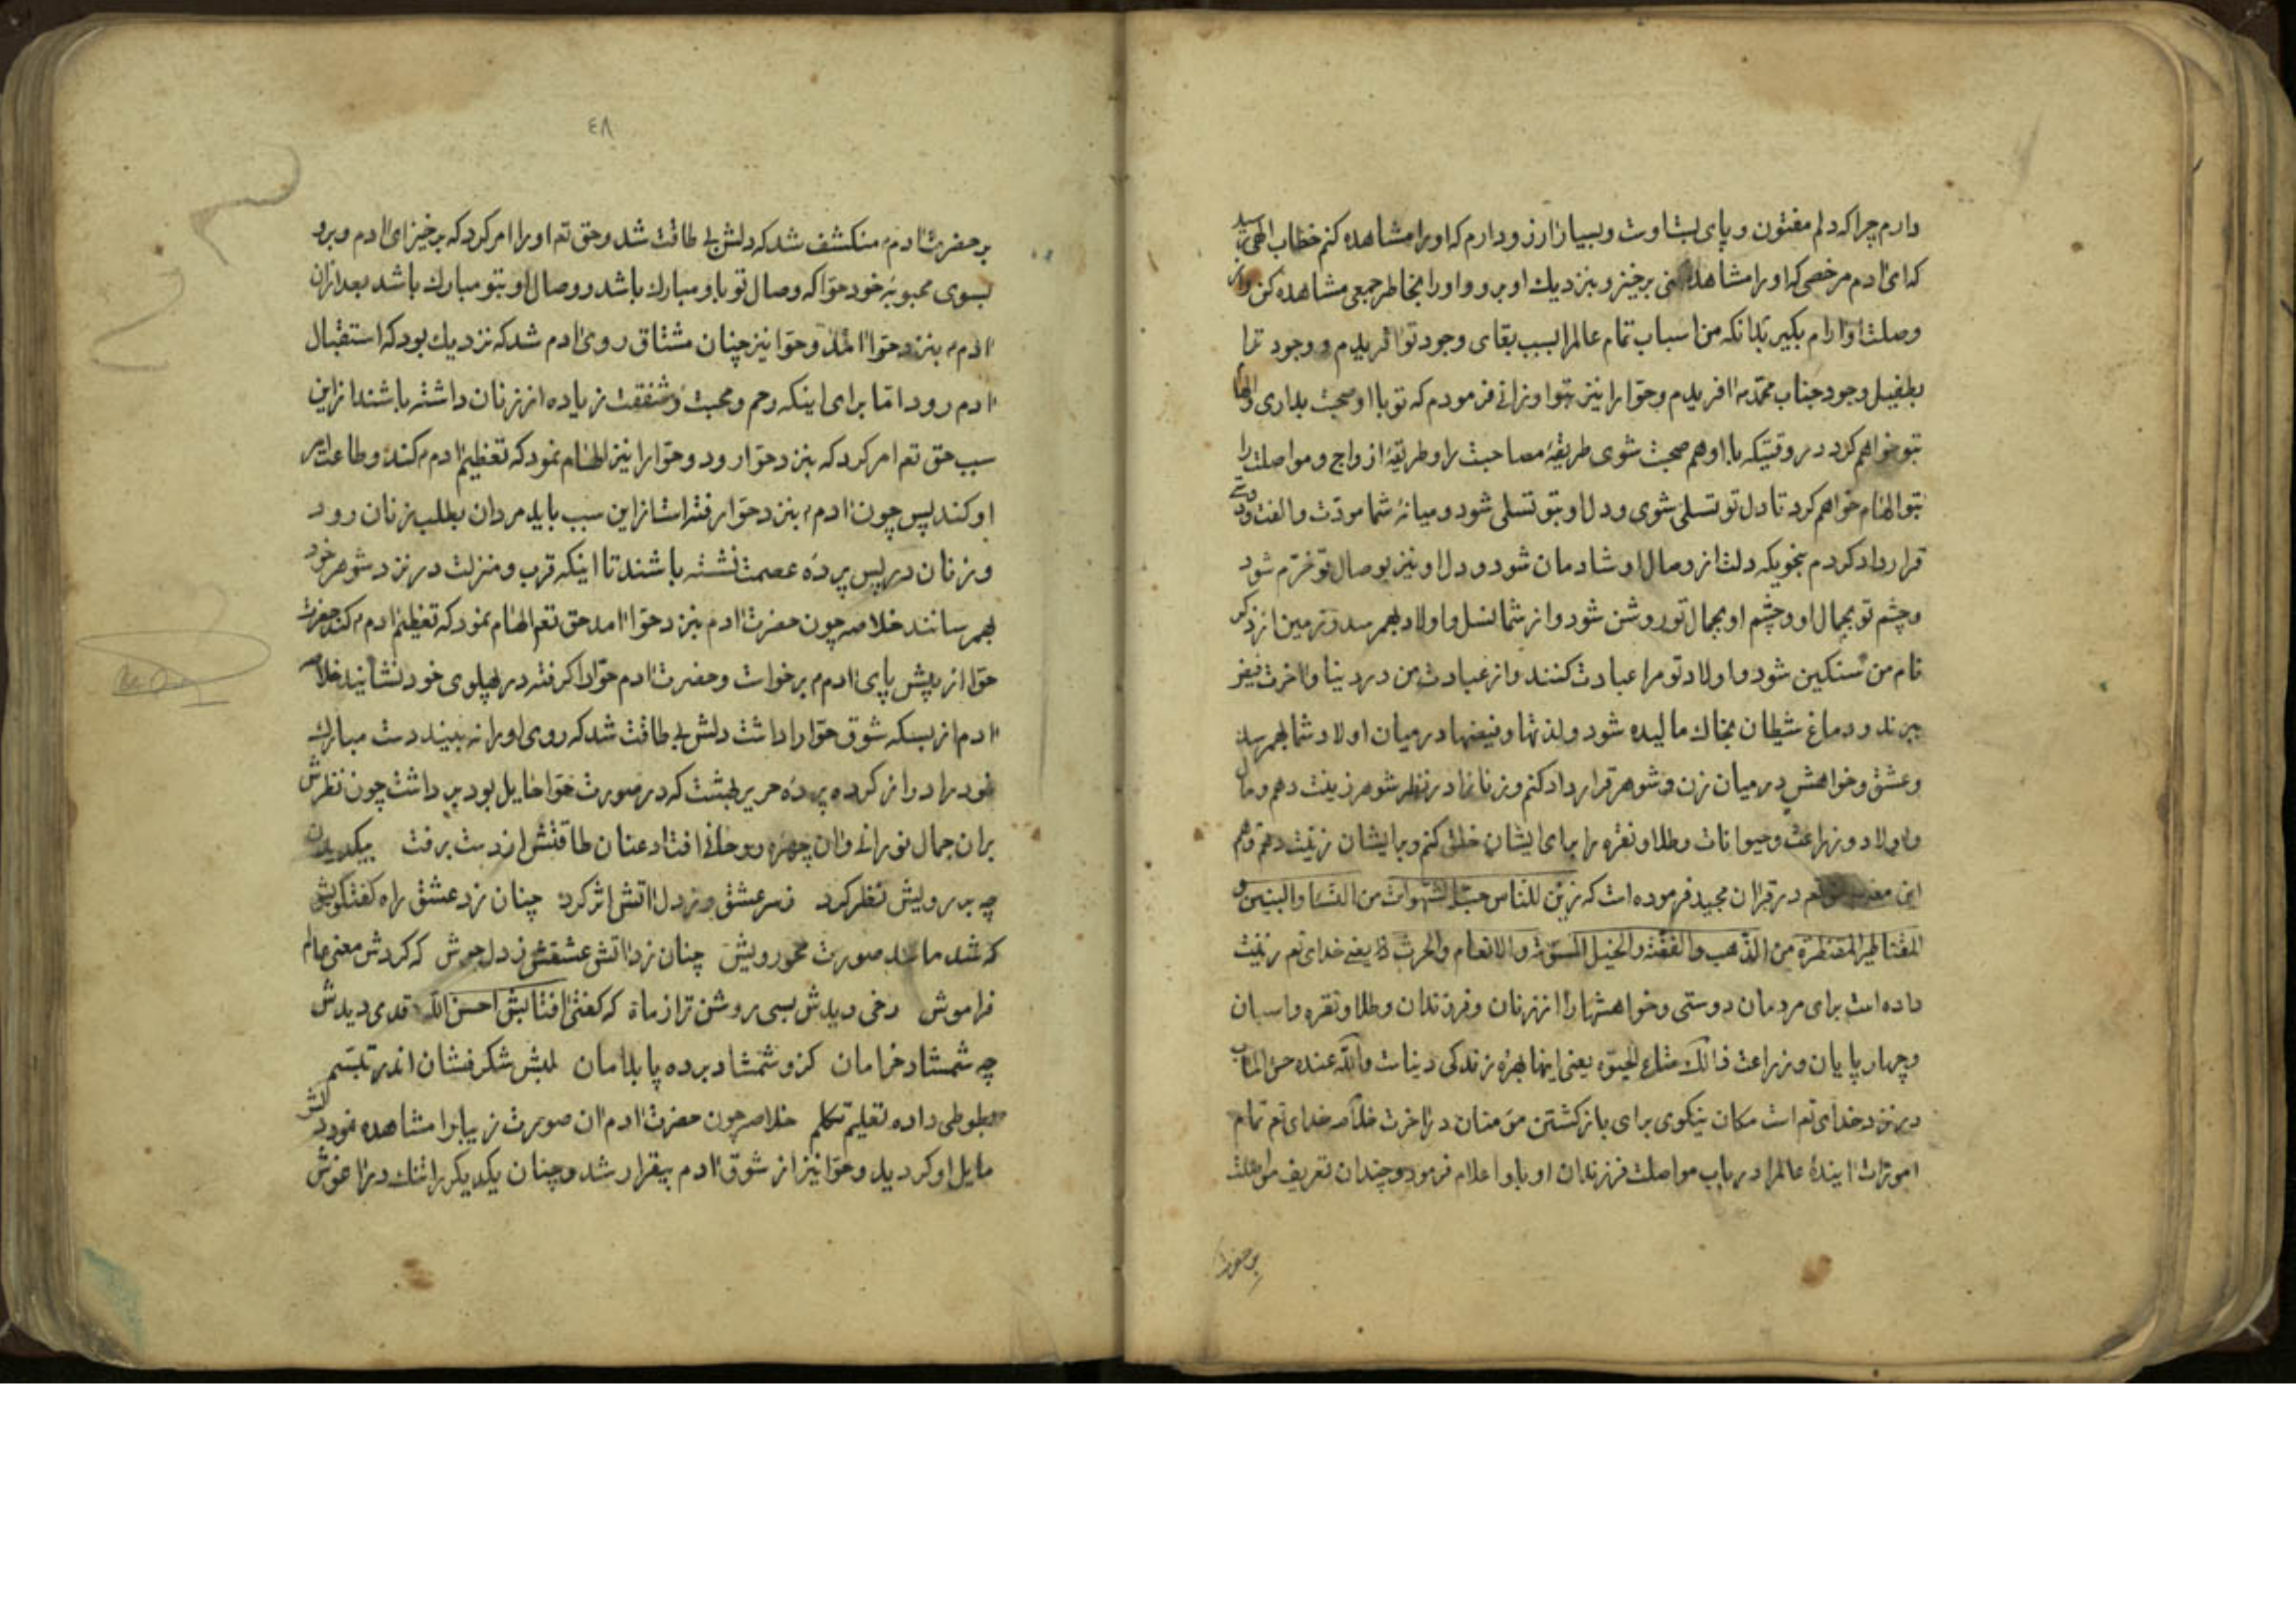 دارم چرا که دلم مفتون و پای بست اوست و بسیار ارزو دارم که او را مشاهده کنم خطاب الهی رسید
که ای ادم مرخصی که او را مشاهده کنی برخیز و بنزدیك او برو و او را بخاطر جمعی مشاهده کن و از
وصلت او ارام بکیر بدانکه من اسباب تمام عالم را بسبب بقای وجود تو افریدم و وجود ترا
بطفیل وجود جناب محمد افریدم و حوا را نیز بتو ارزانی فرمودم که تو با او صحبت بداری و الهام
بتو خواهم کرد در وقتیکه با او هم صحبت شوی طریقهٔ مصاحبت را و طریقهٔ ازواج و مواصلت را
بتو الهام خواهم کرد تا دل تو تسلی شوی و دل او بتو تسلی شود و میانهٔ شما مودّت و الفت و دوستی
قرارداد کردم بنحویکه دلت از وصال او شادمان شود و دل او نیز بوصال تو خرّم شود
و چشم تو بجمال او و چشم او بجمال تو روشن شود و از شما نسل و اولاد بهم رسد و زمین از ذکر
نام من سنکین شود و اولاد تو مرا عبادت کنند و از عبادت من در دنیا و اخرت فیض
برند و دماغ شیطان بخاك مالیده شود و لذتها و فیضها در میان اولاد شما بهم رسد
و عشق و خواهش در میان زن و شوهر قرارداد کنم و زنانرا در نظر شوهر زینت دهم و مال
و اولاد و زراعت و حیوانات و طلا و نقره را برای ایشان خلق کنم و بایشان زینت دهم
این در قران مجید فرموده است که زیّن للناس حبّ الشهوات من النساء و البنین و
القناطیر المقنطرة من الذّهب و الفضّة و الخیل المسوّمة و الانعام و الحرث یعنی خدای تم زینت
داده است برای مردمان دوستی و خواهشها را از زنان و فرزندان و طلا و نقره و اسبان
و چهار پایان و زراعت ذالك متاع الحیوة یعنی اینها بهرهٔ زندکی دنیاست و الله عنده حسن الماب
در نزد خدای تم است مکان نیکوی برای بازکشتن مؤمنان در اخرت خلاصه خدای تم تمام
امورات ایندهٔ عالم را در باب مواصلت فرزندان او باو اعلام فرمود و چندان تعریف مواصلت
بر حضرت
٤٨
بر حضرت ادم منکشف شد که دلش بی طاقت شد و حق تم او را امر کرد که برخیز ای ادم و برو
بسوی محبوبهٔ خود حوّا که وصال تو باو مبارك باشد و وصال او بتو مبارك باشد بعد ازان
ادم بنزد حوّا امد و حوّا نیز چنان مشتاق روی ادم شد که نزدیك بود که استقبال
ادم رود امّا برای اینکه رحم و محبت و شفقت زیاده از زنان داشته باشند از این
سبب حق تم امر کرد که بنزد حوّا رود و حوّا را نیز الهام نمود که تعظیم ادم کند و طاعت امر
او کند پس چون ادم بنزد حوّا رفته است از این سبب باید مردان بطلب زنان رود
و زنان در پس پردهٔ عصمت نشسته باشند تا اینکه قرب و منزلت در نزد شوهر خود
بهم رسانند خلاصه چون حضرت ادم بنزد حوّا امد حق تم الهام نمود که تعظیم ادم کند حضرت
حوّا از پیش پای ادم برخواست و حضرت ادم حوّا را کرفته در پهلوی خود نشانید خلاصه
ادم از بسکه شوق حوّا را داشت دلش بی طاقت شد که روی او را نه بیند دست مبارك
خود را دراز کرده پردهٔ حریر بهشت که در صورت حوّا حایل بود برداشت چون نظرش
بران جمال نورانی و ان چهرهٔ روحانی افتاد عنان طاقتش از دست برفت بیکدیدن
چه بر رویش نظر کرد ز سر عشق و ز دل اتش اثر کرد چنان زد عشق راه کفتکویش
که شد مانند صورت محو رویش چنان زد اتش عشقش ز دل جوش که کردش معنی عالم
فراموش رخی دیدش بسی روشن تر از ماه که کفتی افتابش احسن الله قدی دیدش
چه شمشاد خرامان کزو شمشاد برده پا بدامان لبش شکرفشان اندر تبسم
بطوطی داده تعلیم تکلم خلاصه چون حضرت ادم ان صورت زیبا را مشاهده نمود دلش
مایل او کردید و حوّا نیز از شوق ادم بیقرار شد و چنان یکدیکر را تنك در اغوش